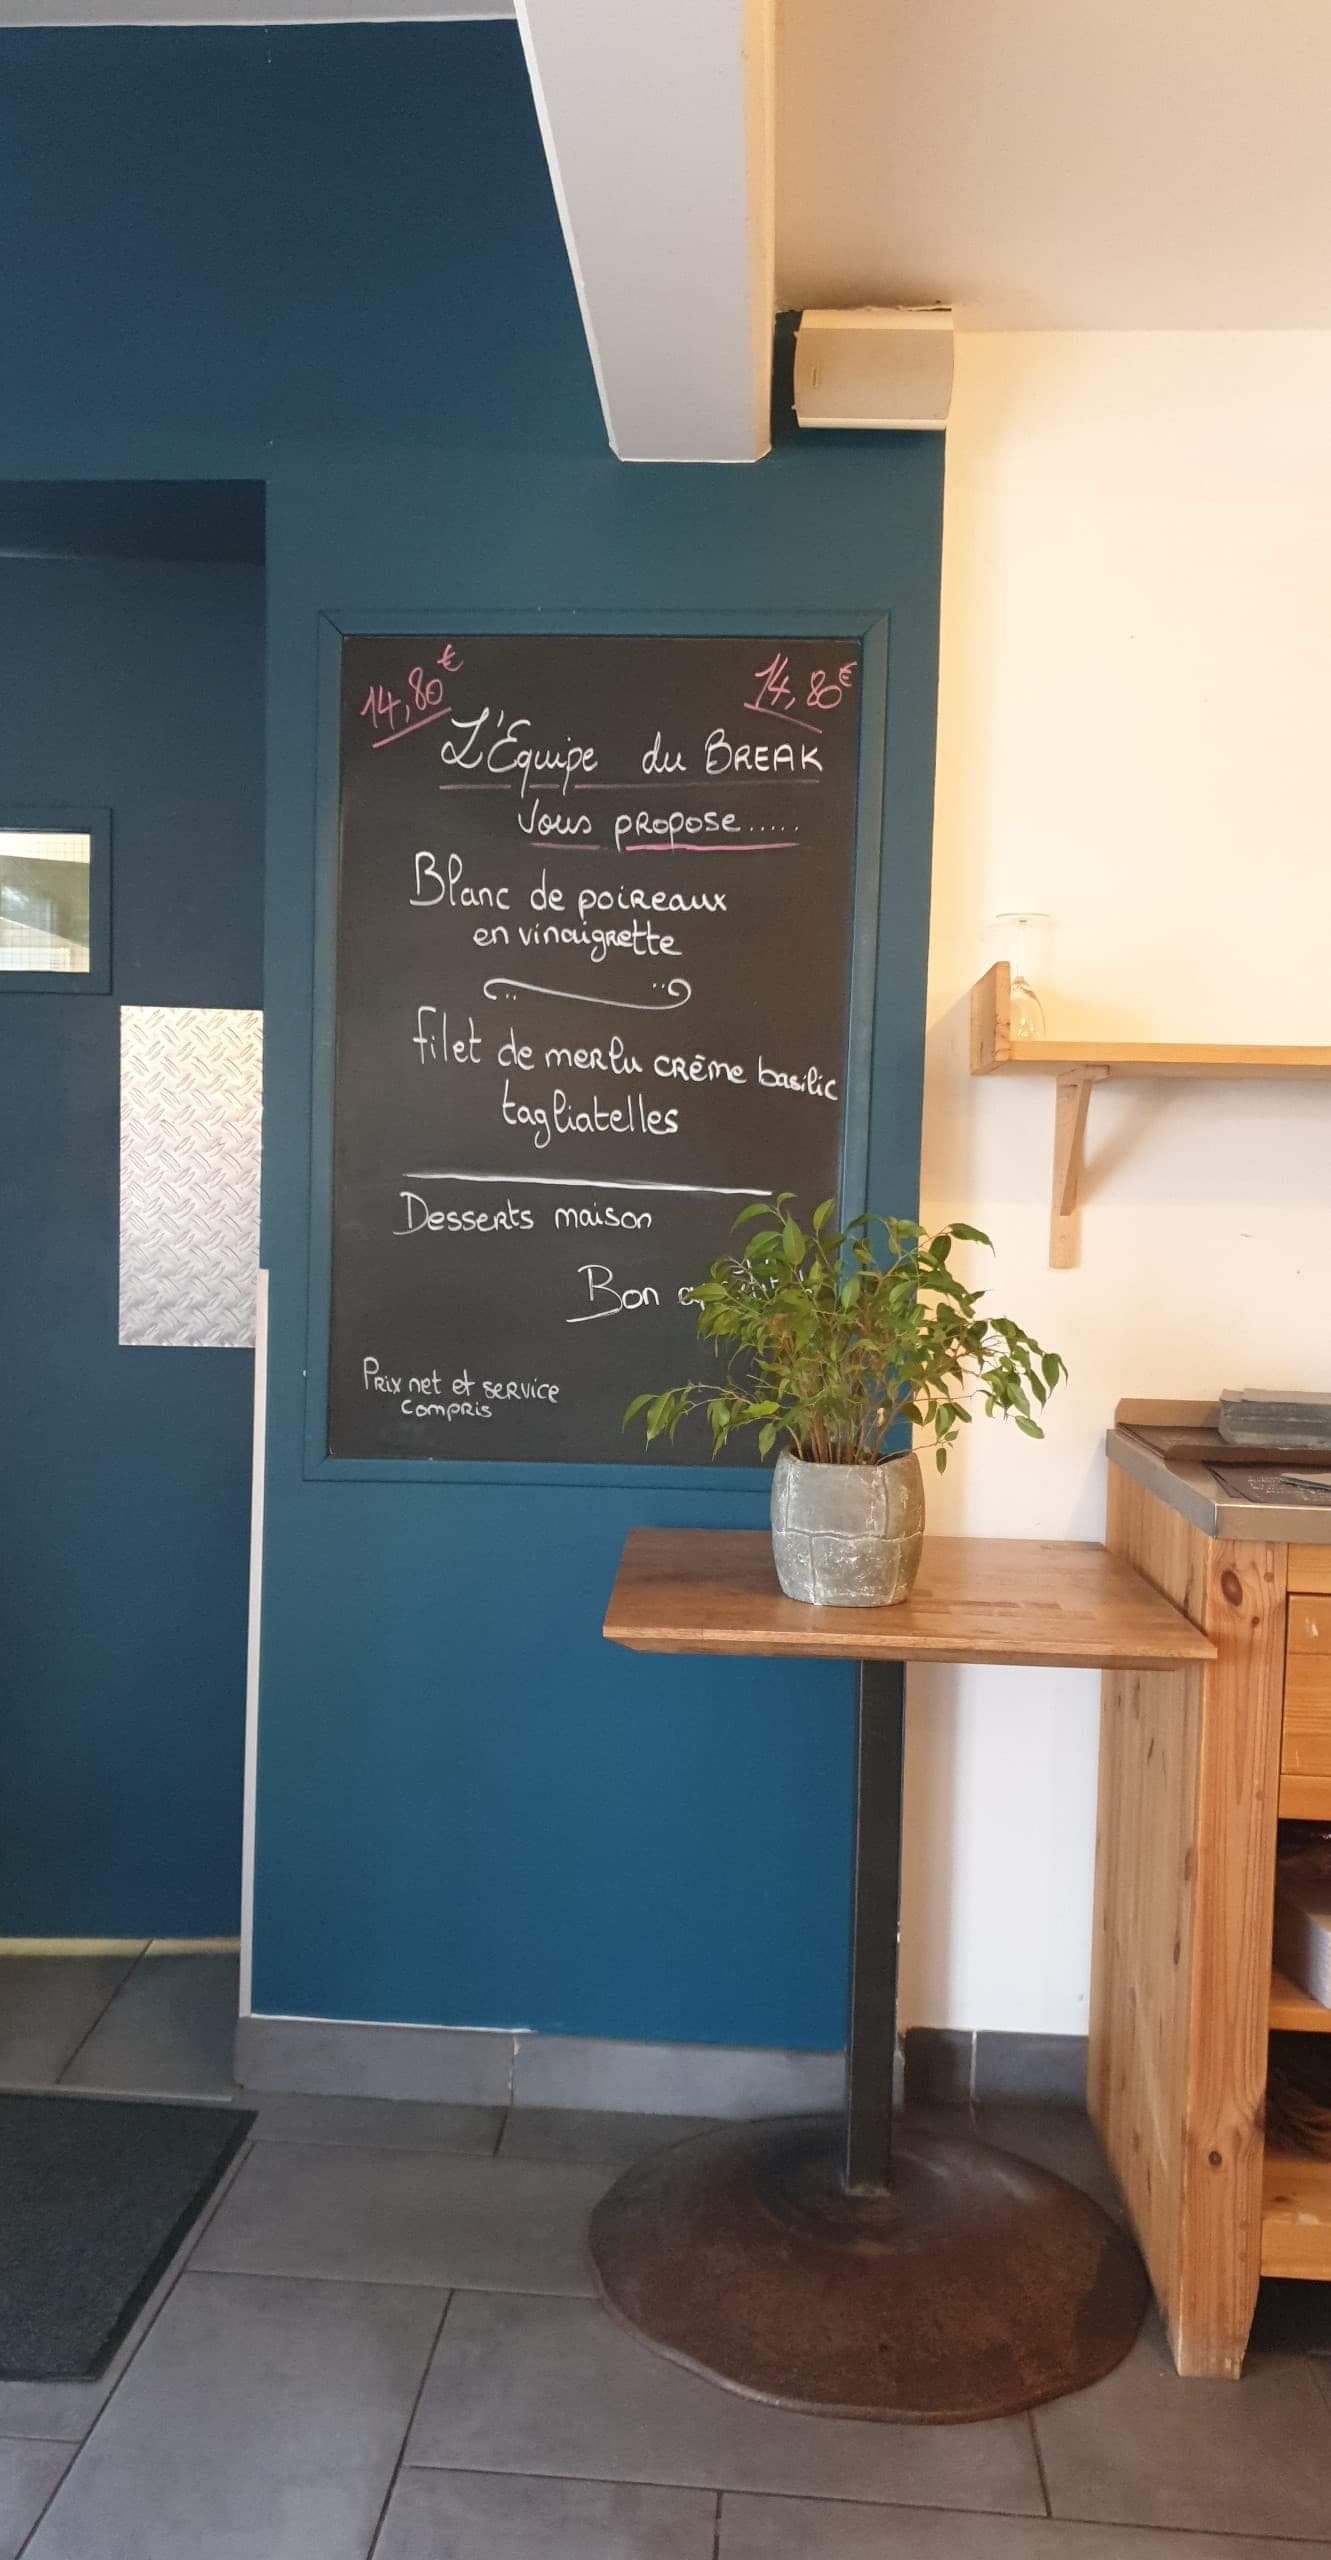 14,80€
14,80€
L'Equipe du BREAK
Vous propose.....
Blanc de poireaux
en vinaigrette
filet de merlu crème basilic
tagliatelles
Desserts maison
Bon
Prix net et service
compris